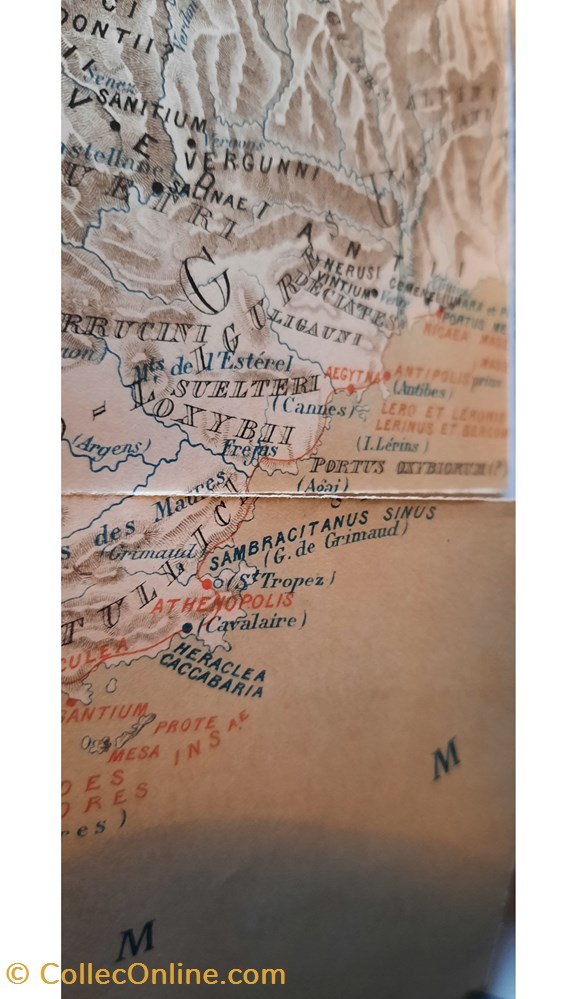 CI
DONTII
Verdon
Senez
SANITIUM
Vergons
VERGUNNI
Castellane
SALINAE
VEDIANTII
UETRI
NERUSI
VINTIUM
DECIATES
G
LIGURES
LIGAUNI
RRUCINI
Mts de l'Estérel
SUELTERI
(Cannes)
L'OXYBII
AEGYTNA
ANTIPOLIS
(Antibes)
LERO ET LERINUS
LERINUS ET
(I. Lérins)
PORTUS OXYBIORUM
(Argens)
Fréjus
(Agai)
s des Maures
(Grimaud)
SAMBRACITANUS SINUS
(G. de Grimaud)
(St Tropez)
ATHENOPOLIS
(Cavalaire)
HERACLEA
CACCABARIA
CULEA
GANTIUM
PROTE
MESA INSAE
DES
ORES
res)
M
M
© CollecOnline.com